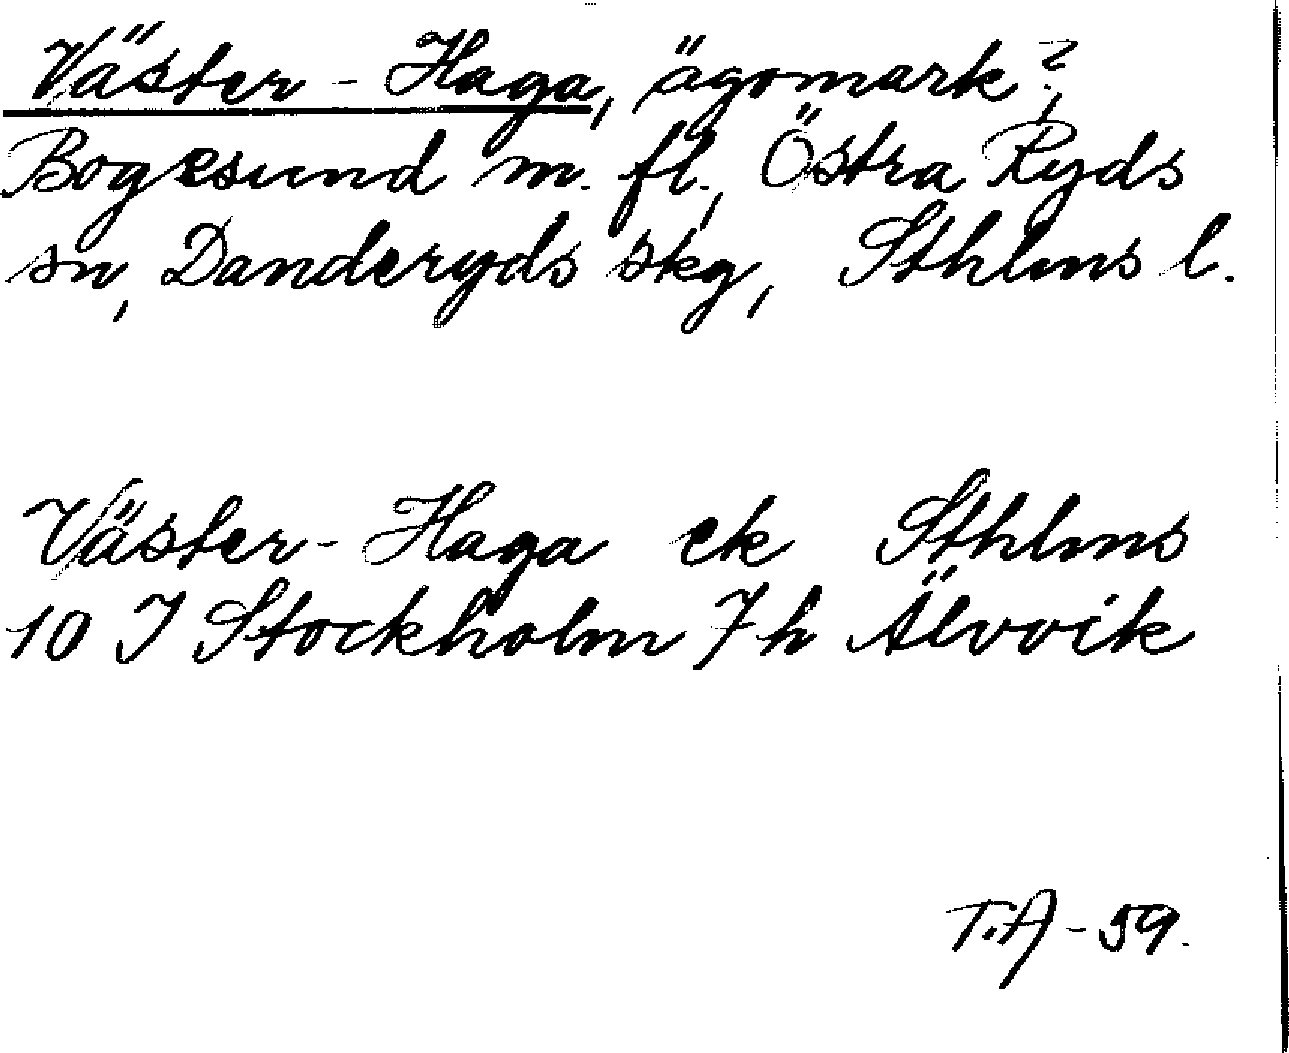 Väster-Haga, ägomark?,
Bogesund m. fl., Östra Ryds
sn, Danderyds skg, Sthlms l.
Väster-Haga ek Sthlms
10 I Stockholm 7h Älvvik
T.A-59.